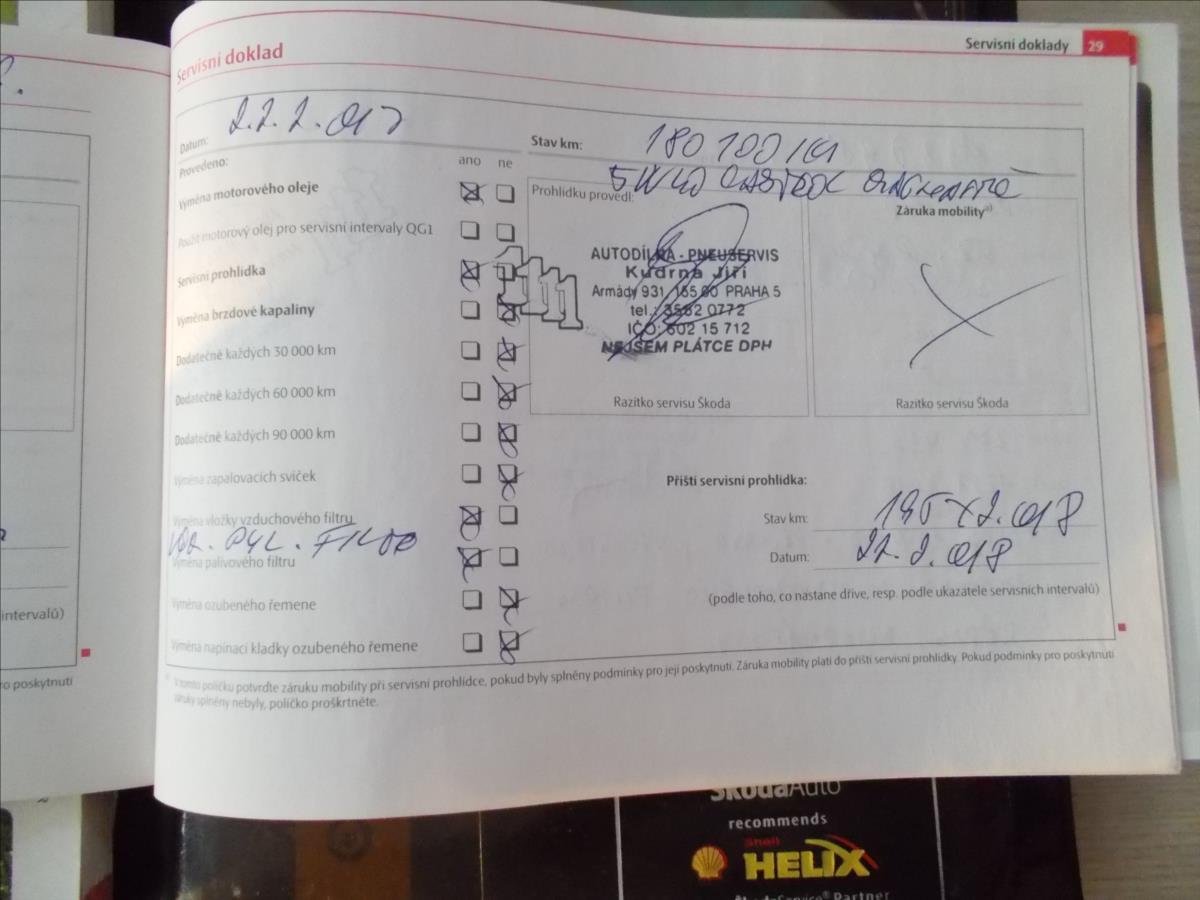 Servisní doklady 29
Servisní doklad
Datum: 22.2.017
Stav km: 180 100
5W40 CASTROL
Provedeno: ano ne
Výměna motorového oleje
Použit motorový olej pro servisní intervaly QG1
Servisní prohlídka
Výměna brzdové kapaliny
Dodatečně každých 30 000 km
Dodatečně každých 60 000 km
Dodatečně každých 90 000 km
Výměna zapalovacích svíček
Výměna vložky vzduchového filtru
Výměna palivového filtru
Výměna ozubeného řemene
Výměna napínací kladky ozubeného řemene
Prohlídku provedl:
AUTODÍLNA - PNEUSERVIS
Kudrna Jiří
Armády 931, 155 00 PRAHA 5
tel.: 3562 0772
IČO: 602 15 712
NEJSEM PLÁTCE DPH
Razítko servisu Škoda
Záruka mobility a)
Razítko servisu Škoda
Příští servisní prohlídka:
Stav km:
Datum: 22.2.018
(podle toho, co nastane dříve, resp. podle ukazatele servisních intervalů)
a) V tomto políčku potvrďte záruku mobility při servisní prohlídce, pokud byly splněny podmínky pro její poskytnutí. Záruka mobility platí do příští servisní prohlídky. Pokud podmínky pro poskytnutí
záruky splněny nebyly, políčko proškrtněte.
intervalů)
ro poskytnutí
ŠkodaAuto
recommends
Shell
HELIX
Partner